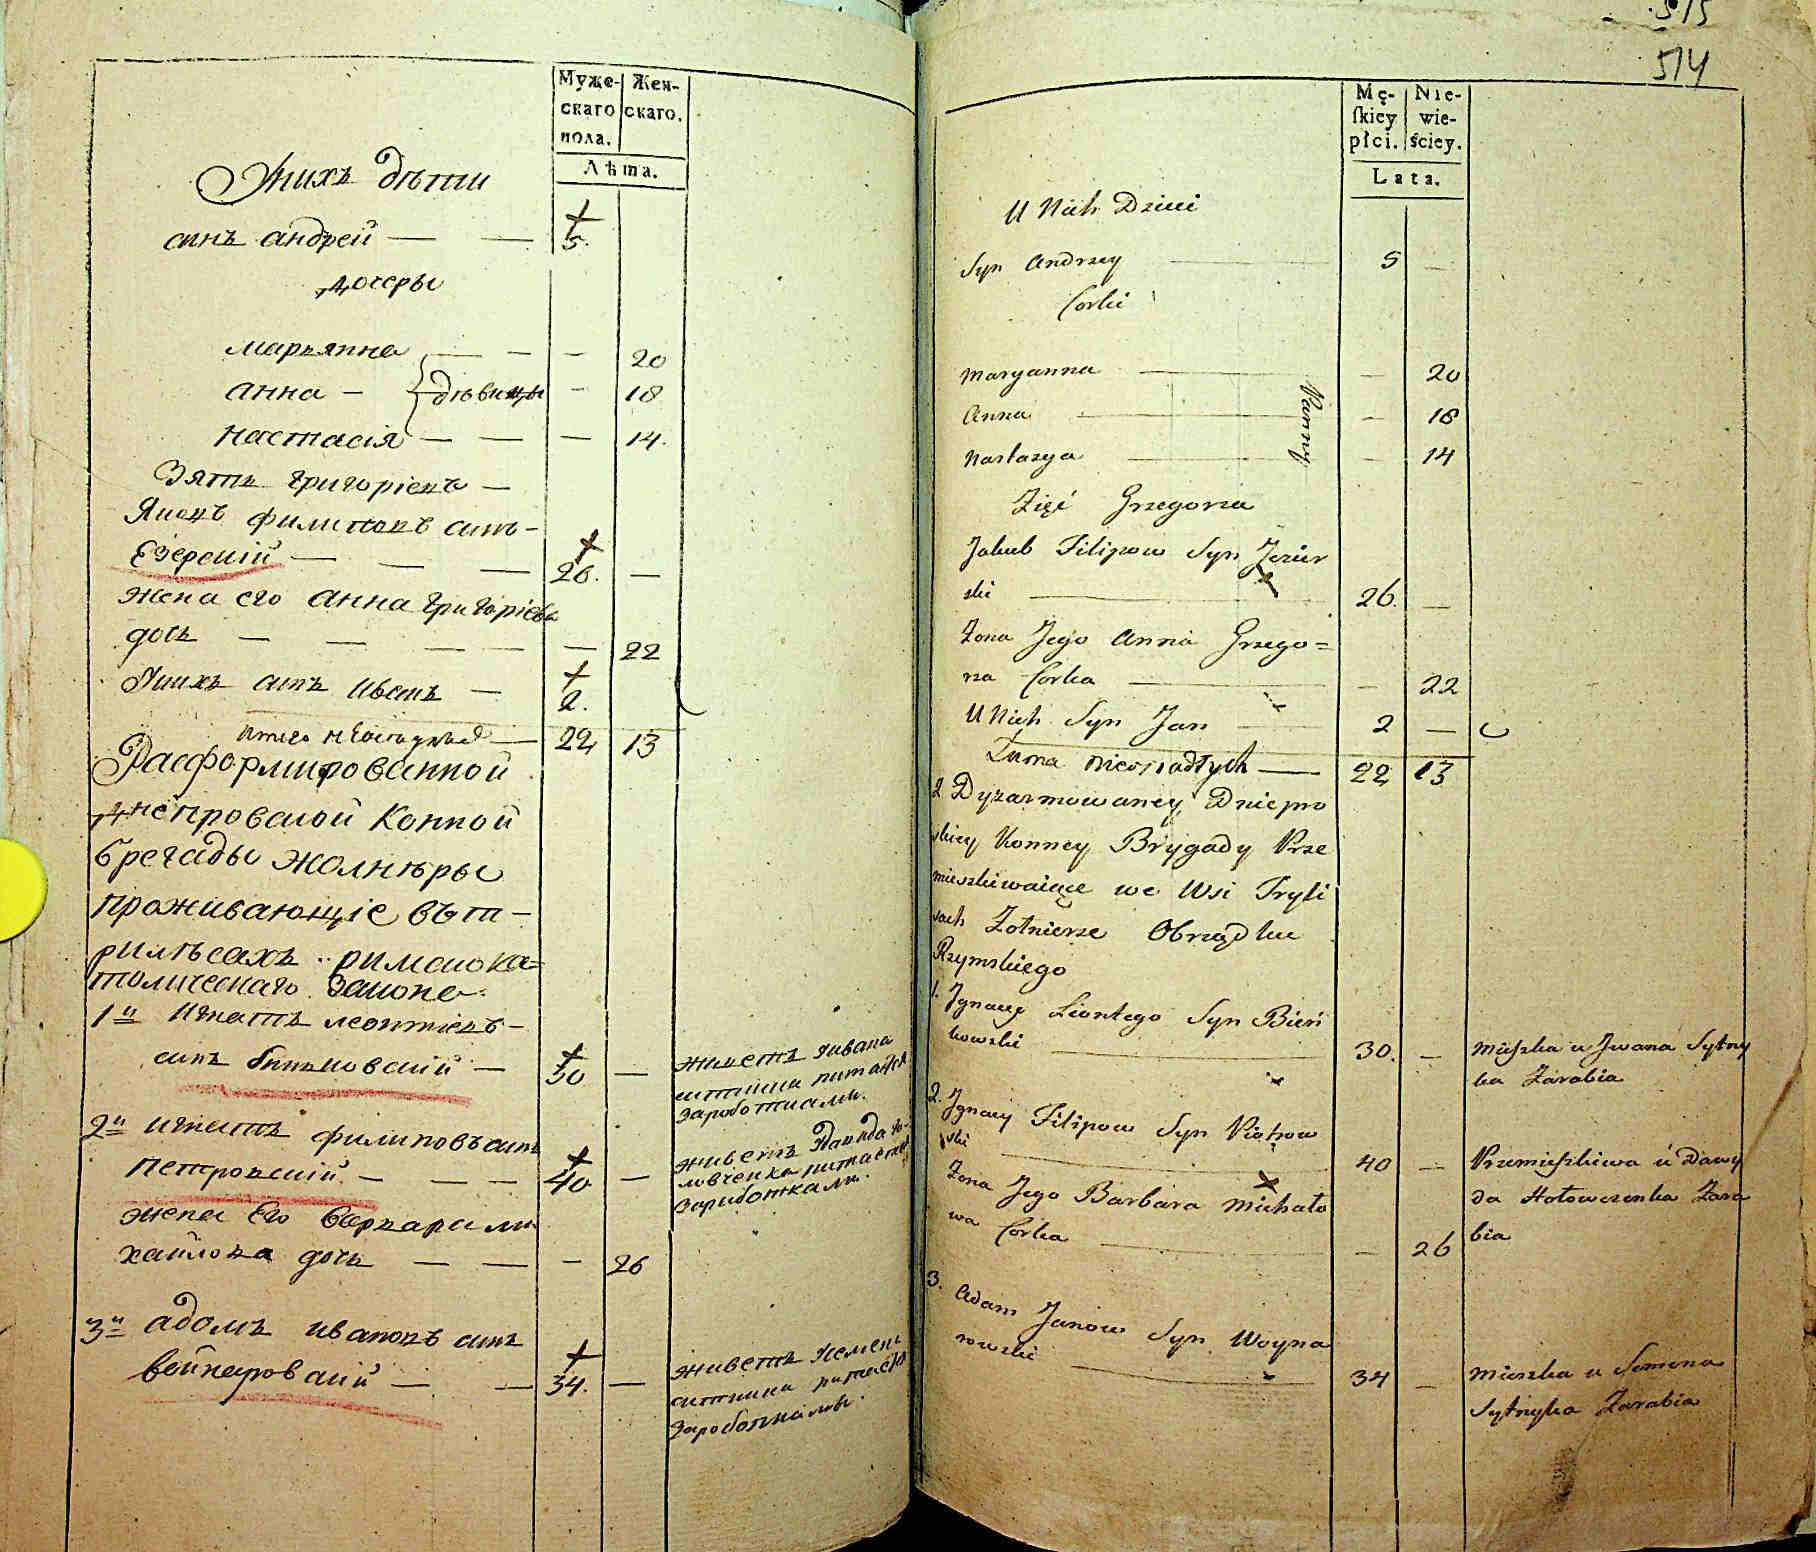 Муже- Жен-
скаго скаго.
пола.
Лѣта.
Унихъ дѣти
синъ андрей — — 5.
дочеры
марьянна — — — 20
анна — дѣвицы — 18
настасія — — — 14.
Зять григоріевъ —
Яковъ филиповъ синъ —
Езерскій — — — 26. —
жена его анна григоріева
дочь — — — — — 22
Унихъ синъ иванъ — 2.
итого — 22 13
Расформированной
днепровской конной
брегады жолнѣры
проживающіе въ т-
рилѣсахъ римскока=
толическаго закона
1й Игнатъ леонтіевъ —
синъ биньковскій — 30 —
живетъ уивана
ситника питается
заработками.
2й игнатъ филиповъ синъ
петровскій — — — 40 —
живетъ удавида го-
ловченка питается
заработками.
жена его варвара ми
хайлова дочь — — — 26
3й адамъ ивановъ синъ
войнаровскій — — 34. —
живетъ усемена
ситника питается
заработками.
515
514
Mę- Nie-
ſkiey wie-
płci. ściey.
Lata.
U Nich Dzieci
Syn Andrzey — 5 —
Corki
Maryanna — — 20
Anna — — 18
Nastazya — — 14
Panny
Zięć Grzegorza
Jakub Filipow Syn Jezier
ski — 26. —
Zona Jego Anna Grzego=
rza Corka — — 22
U Nich Syn Jan — 2 —
Suma nieosiadłych — 22 13
2 Dyzarmowaney Dniepro
skiey Konney Brygady Prze
mieszkiwaiące we Wsi Tryli
sach Zołnierze Obrządku
Rzymskiego
1. Ignacy Liontego Syn Bień
kowski — 30. —
Mieszka u Iwana Sytny
ka Zarabia
2. Ignacy Filipow Syn Piotrow
ski — 40 —
Przemieszkiwa u Dawy
da Hołowczenka Zara
bia
Zona Jego Barbara Michało
wa Corka — — 26
3. Adam Janow Syn Woyna
rowski — 34 —
Mieszka u Semena
Sytnyka Zarabia